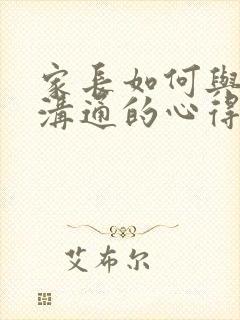 家长如何與
溝通的心得
艾布尔